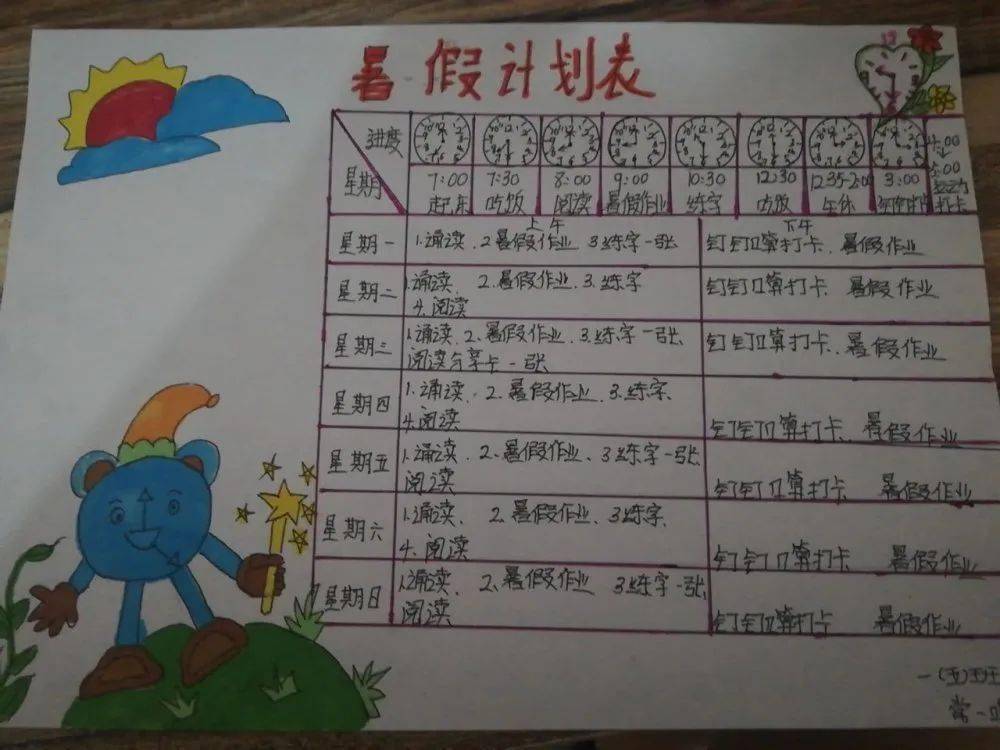 暑假计划表
进度
星期
7:00
起床
7:30
吃饭
8:00
阅读
9:00
暑假作业
10:30
练字
12:30
吃饭
12:35-2:00
午休
3:00
4:00
5:00
运动
打卡
上午
下午
星期一
1.诵读、2暑假作业 3.练字一张
钉钉口算打卡、暑假作业
星期二
1.诵读、 2.暑假作业、3.练字
4.阅读
钉钉口算打卡 暑假作业
星期三
1.诵读、2.暑假作业、3.练字一张
阅读分享卡一张
钉钉口算打卡、暑假作业
星期四
1.诵读、2.暑假作业、3.练字、
4.阅读
钉钉口算打卡、暑假作业
星期五
1.诵读、2、暑假作业、3练字一张
阅读
钉钉口算打卡 暑假作业
星期六
1.诵读、2.暑假作业、3练字、
4.阅读
钉钉口算打卡 暑假作业
星期日
1.诵读、2.暑假作业 3练字一张
阅读
钉钉口算打卡 暑假作业
一(五)班
常一